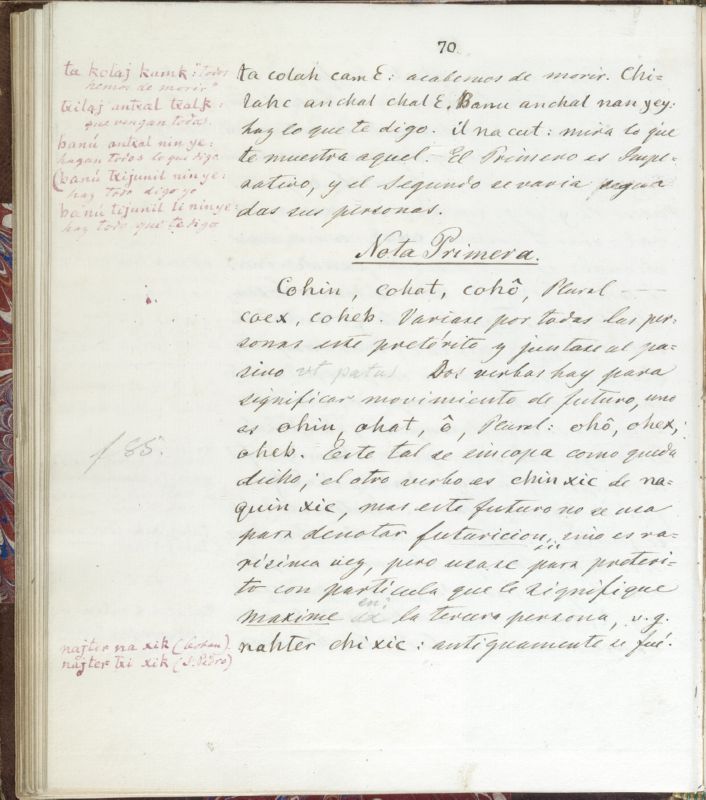 70
ta kolaj kamk: "todos
hemos de morir"
txilaj antxal txalk:
que vengan todos.
banú antxal nin ye:
hagan todos lo que digo
(banú txijunil nin ye:
haz todo digo yo
banú tijunil li nin ye:
haz todo que te digo
ta colah cam Ɛ: acabemos de morir. Chi-
lahc anchal chal Ɛ, Banu anchal nan yey:
haz lo que te digo. il na cut: mira lo que
te muestra aquel. El Primero es Impe-
rativo, y el segundo se varia segun
das sus personas.
Nota Primera.
Cohin, cohat, cohô, Plural —
coex, coheb. Variase por todas las per-
sonas este pretérito y juntase al pa-
sivo vt patus Dos verbos hay para
significar movimiento de futuro, uno
es ohin, ohat, ô, Plural: ohô, ohex,
oheb. Este tal se sincopa como queda
dicho; el otro verbo es chin xic de na-
quin xic, mas este futuro no se usa
para denotar futuricion, sino es ra-
risima vez, pero usase para preteri-
to con particula que le signifique
en:
maxime la tercera persona, v. g.
nahter chi xic: antiguamente se fué.
f 85.
najter na xik (Coban)
najter txi xik (S. Pedro)